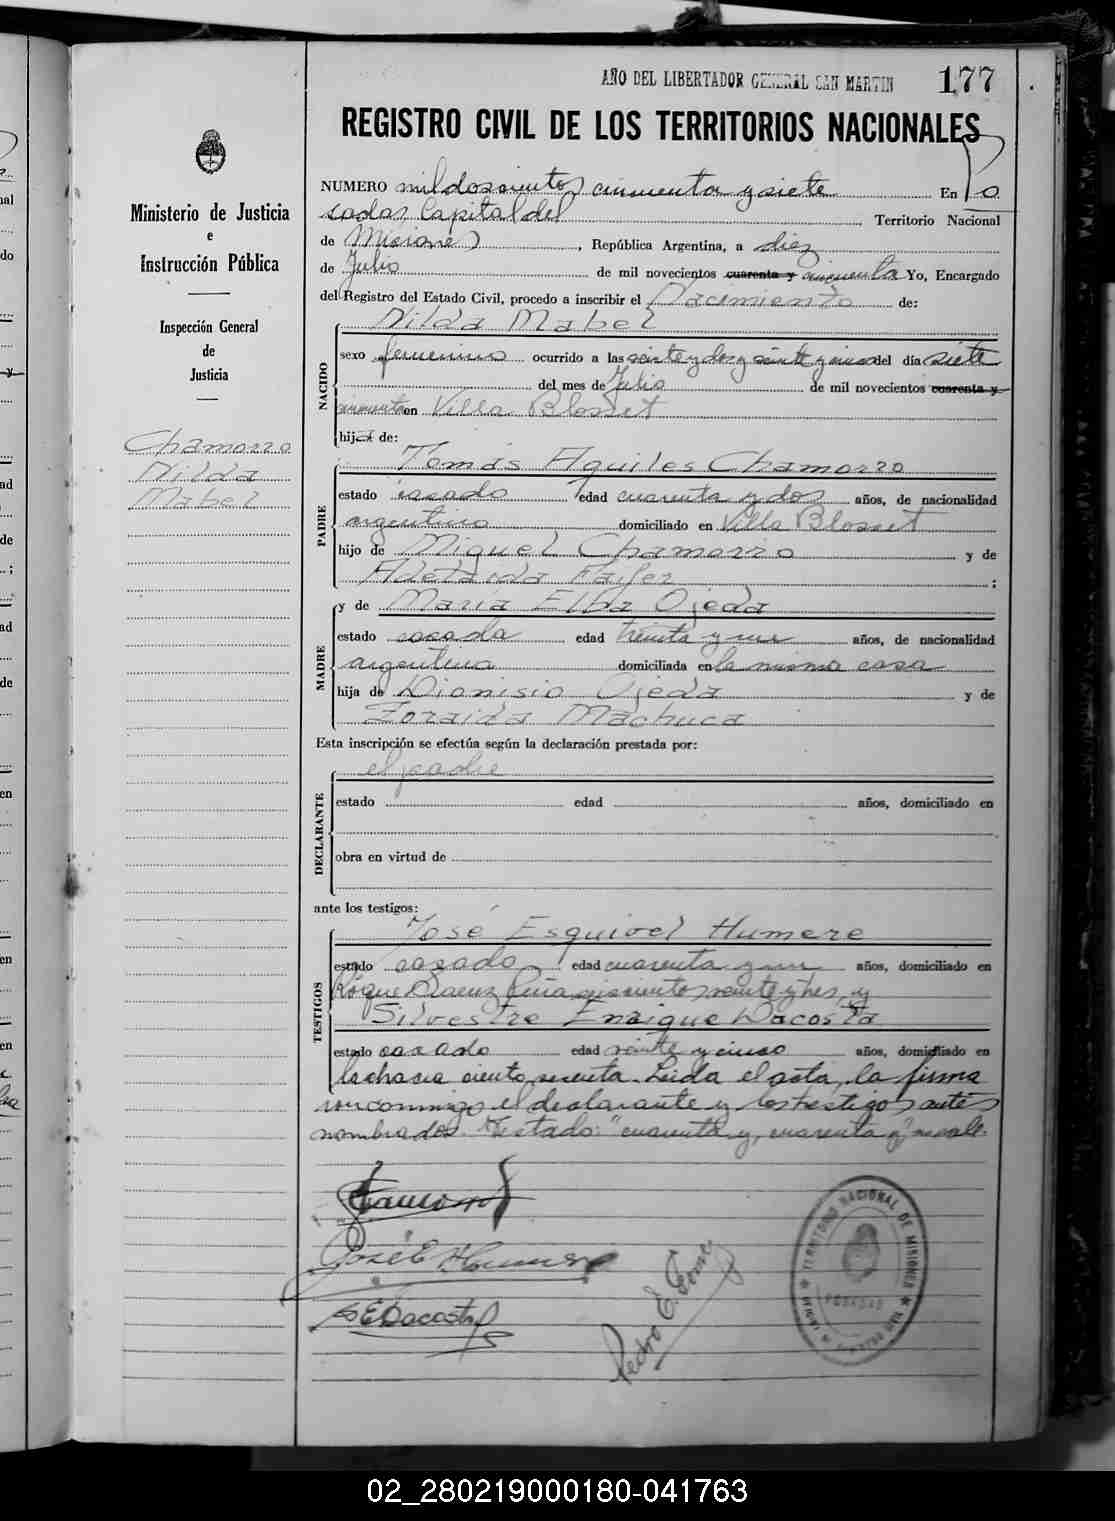 AÑO DEL LIBERTADOR GENERAL SAN MARTIN 177
REGISTRO CIVIL DE LOS TERRITORIOS NACIONALES
Ministerio de Justicia
e
Instrucción Pública
Inspección General
de
Justicia
Chamorro
Nilda
Mabel
NUMERO mil doscientos cincuenta y siete En Po
sadas Capital del Territorio Nacional
de Misiones, República Argentina, a diez
de Julio de mil novecientos cuarenta y cincuenta Yo, Encargado
del Registro del Estado Civil, procedo a inscribir el Nacimiento de:
NACIDO
Nilda Mabel
sexo femenino ocurrido a las veinte y dos y veinte y cinco del día siete
del mes de Julio de mil novecientos cuarenta y
cincuenta en Villa Blosset
hija de:
PADRE
Tomás Aquiles Chamorro
estado casado edad cuarenta y dos años, de nacionalidad
argentino domiciliado en Villa Blosset
hijo de Miguel Chamorro y de
Adelaida ;
MADRE
y de María Elba Ojeda
estado casada edad treinta y un años, de nacionalidad
argentina domiciliada en la misma casa
hija de Dionisio Ojeda y de
Zoraida Machuca
Esta inscripción se efectúa según la declaración prestada por:
DECLARANTE
el padre
estado edad años, domiciliado en
obra en virtud de
ante los testigos:
TESTIGOS
José Esquivel Humere
estado casado edad cuarenta y un años, domiciliado en
Roque Saenz Peña seiscientos veinte y tres, y
Silvestre Enrique Dacosta
estado casado edad veinte y cinco años, domiciliado en
la chacra ciento sesenta. Leida el acta, la firma
con conmigo el declarante y los testigos antes
nombrados. Testado: "cuarenta y, cuarenta y" no vale.
Chamorro
José E Humere
S E Dacosta
Pedro E. Gomez
TERRITORIO NACIONAL DE MISIONES
POSADAS
02_280219000180-041763